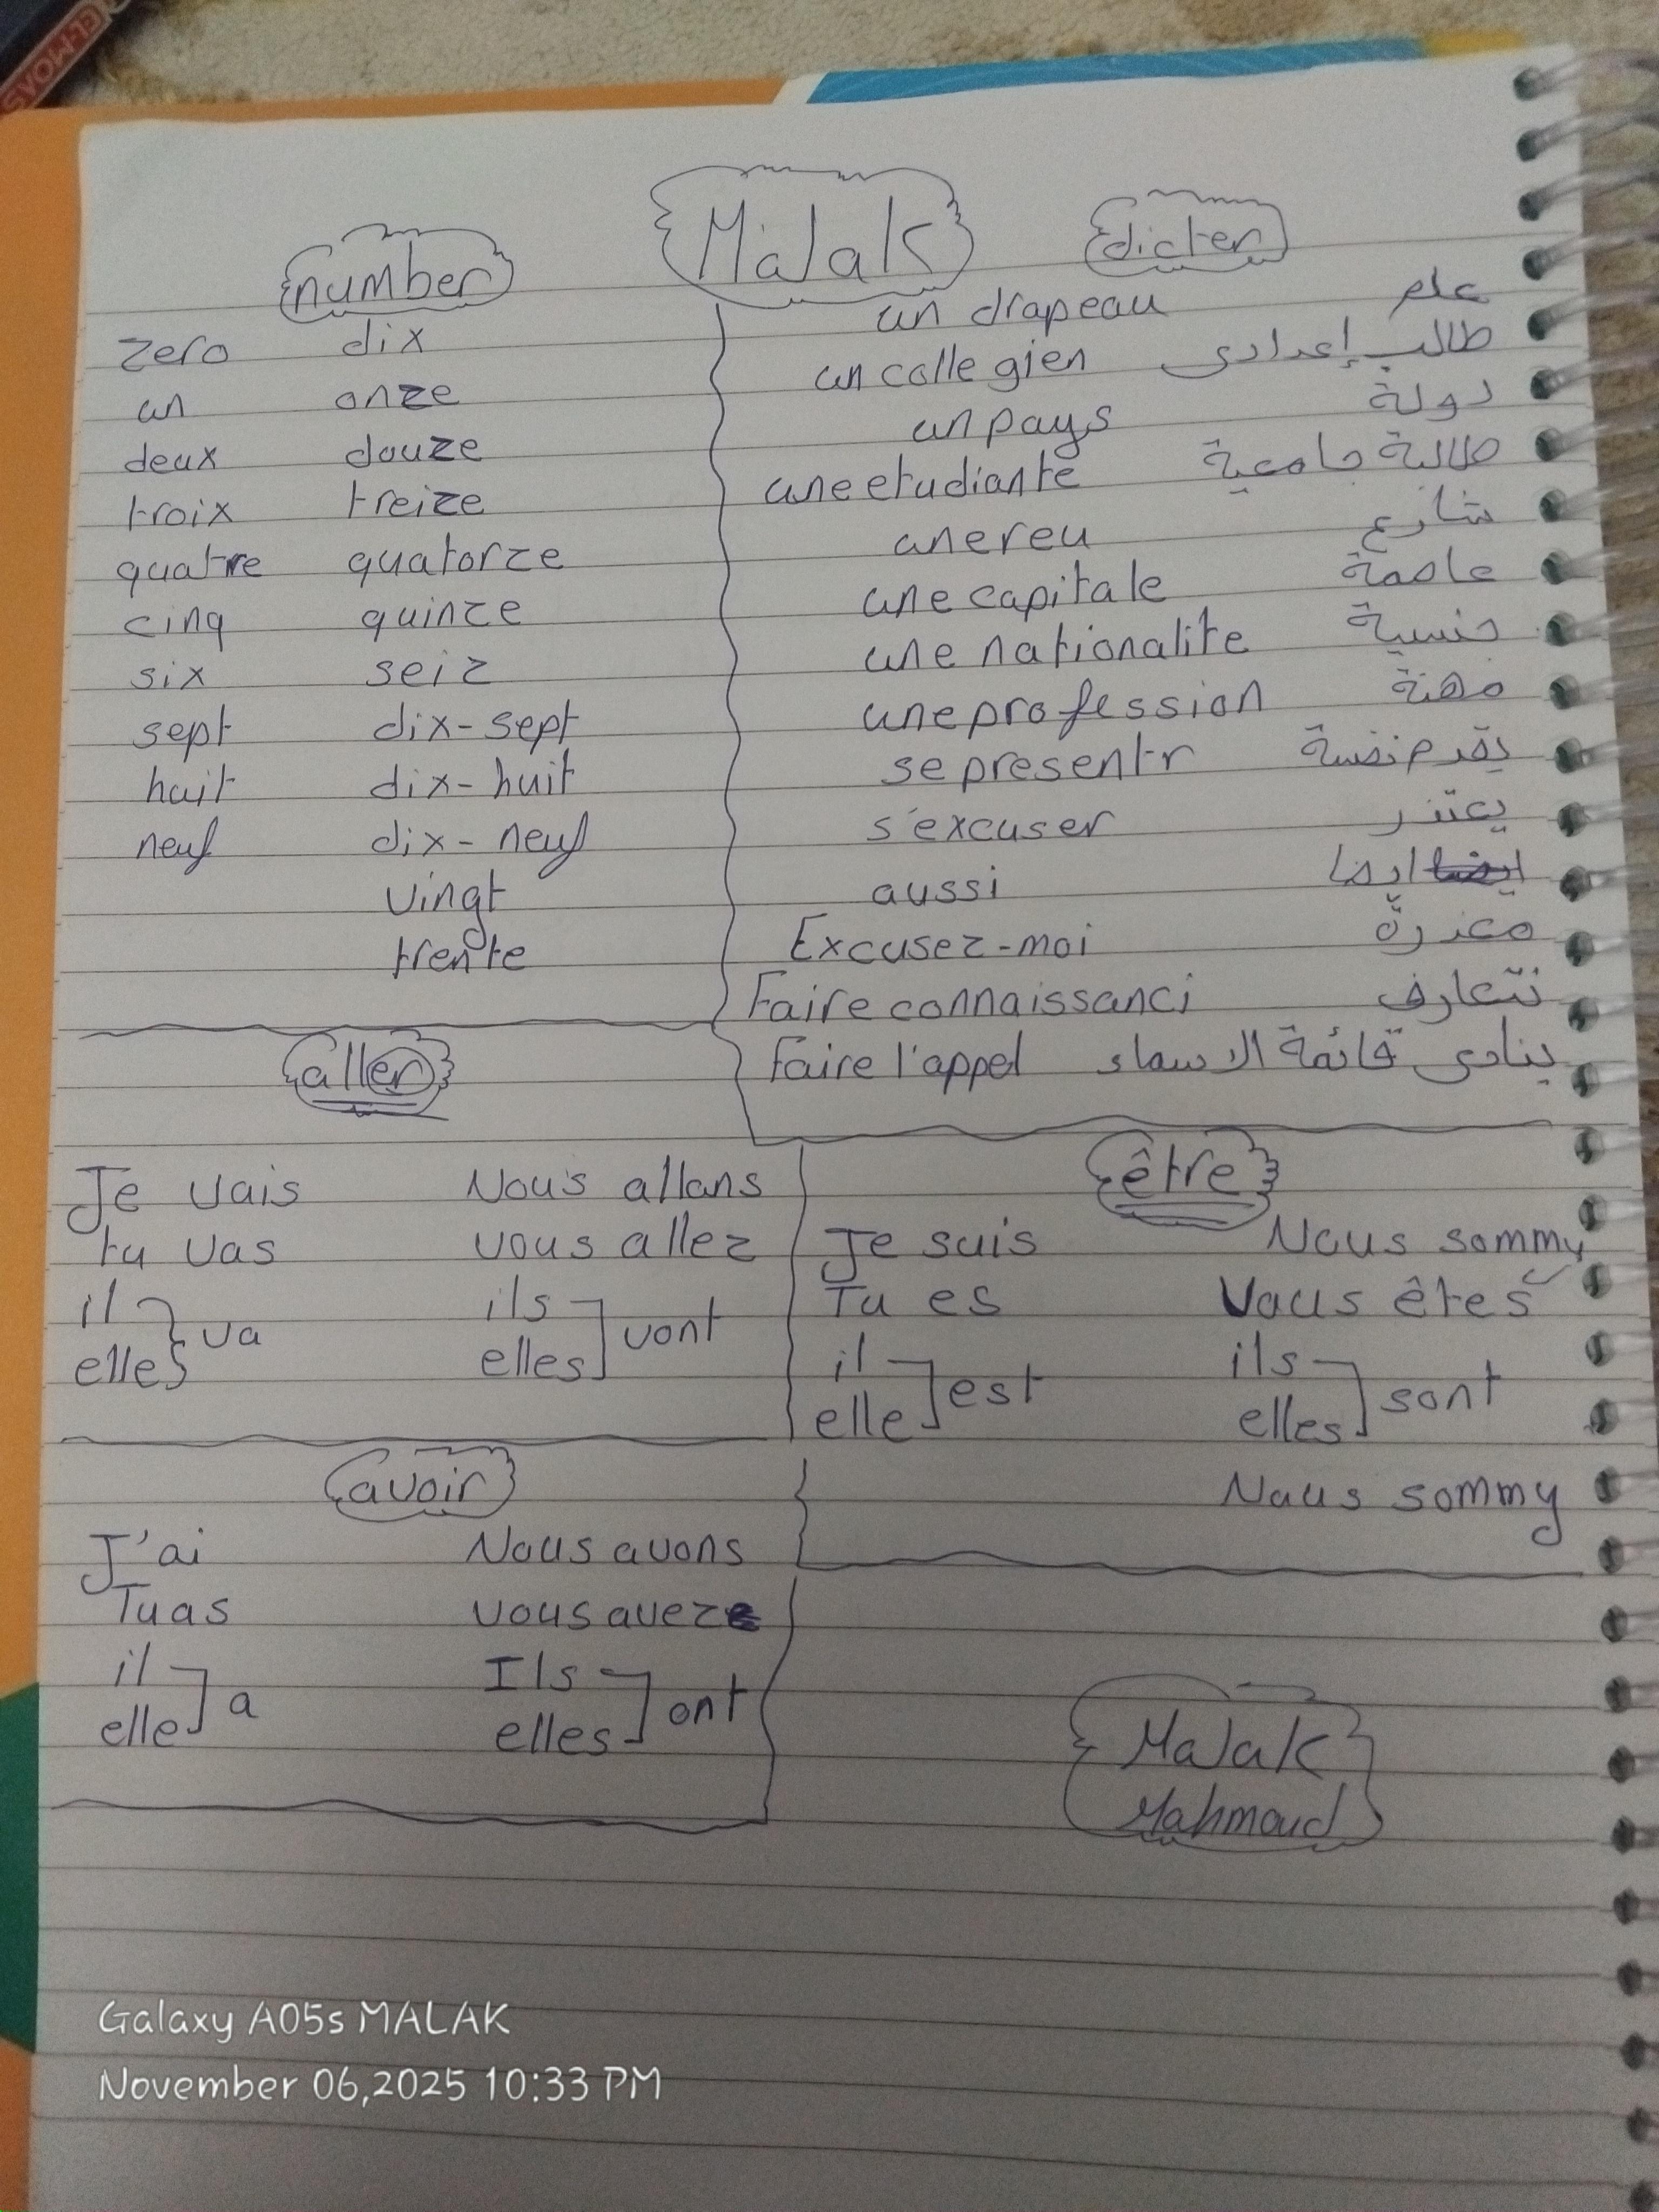 EL-MOAS
Malak
number
zero dix
un onze
deux douze
troix treize
quatre quatorze
cinq quinze
six seiz
sept dix-sept
huit dix-huit
neuf dix-neuf
vingt
trente
dicter
un drapeau علم
un collegien طالب إعدادى
un pays دولة
une etudiante طالبة جامعية
une reu شارع
une capitale عاصمة
une nationalite جنسية
une profession مهنة
se presentr يقدم نفسة
s'excuser يعتذر
aussi ايضا
Excusez-moi معذرة
Faire connaissanci نتعارف
Faire l'appel ينادى قائمة الاسماء
aller
Je vais Nous allons
tu vas vous allez
il ils
va vont
elles elles
être
Je suis Nous sommy
Tu es Vous êtes
il ils
est sont
elle elles
Nous sommy
avoir
J'ai Nous avons
Tu as vous avez
il Ils
a ont
elle elles
Malak
Mahmoud
Galaxy A05s MALAK
November 06,2025 10:33 PM